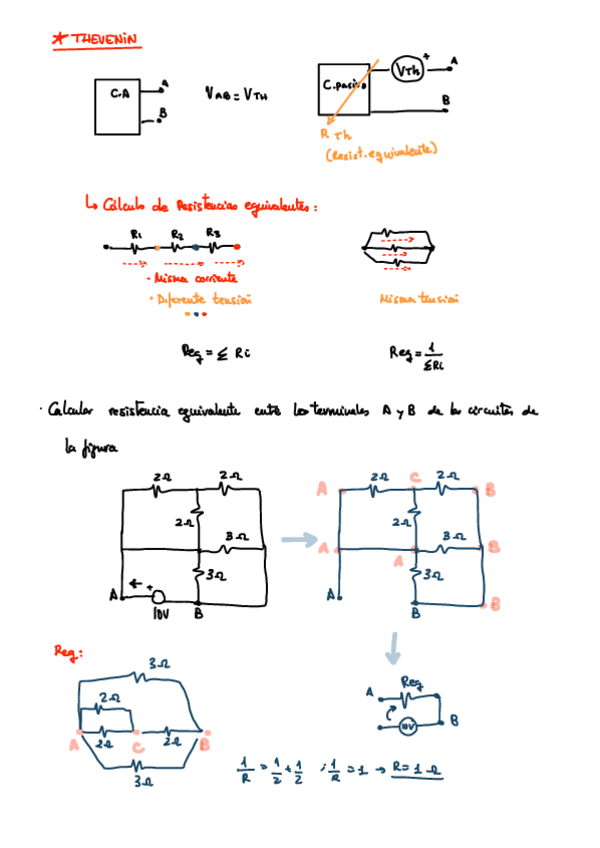 * THEVENIN
C.A
A
B
VAB = VTH
C.pasivo
VTh
+
A
B
RTh
(Resist.equivalente)
↳ Cálculo de Resistencias equivalentes:
R1 R2 R3
· Misma corriente
· Diferente tensión
Misma tensión
Req = Σ Ri
Req = 1/ΣRi
· Calcular resistencia equivalente entre los terminales A y B de los circuitos de
la figura
2Ω 2Ω
2Ω
3Ω
3Ω
A + 10V B
A 2Ω C 2Ω B
2Ω
3Ω
A A B
3Ω
A B B
Req:
3Ω
2Ω
A 2Ω C 2Ω B
3Ω
Req
A
10V
B
1/R = 1/2 + 1/2 ; 1/R = 1 → R = 1 Ω